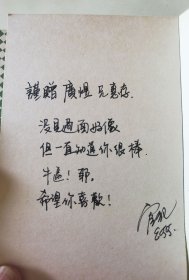 謹贈 廣煜 兄惠存
沒見過面好像
但一直知道你很棒
牛逼！耶，
希望你喜歡！